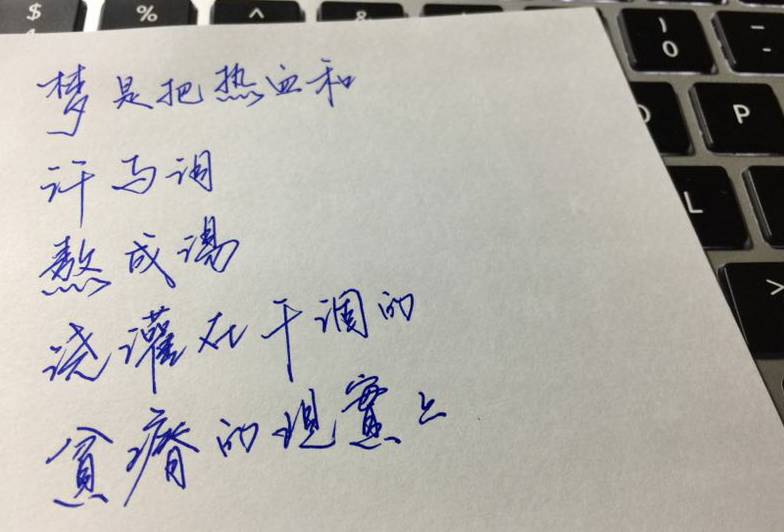 $ % ^ &
4
)
0
P
L
>
梦是把热血和
汗与泪
熬成汤
浇灌在干涸的
貧瘠的現實上